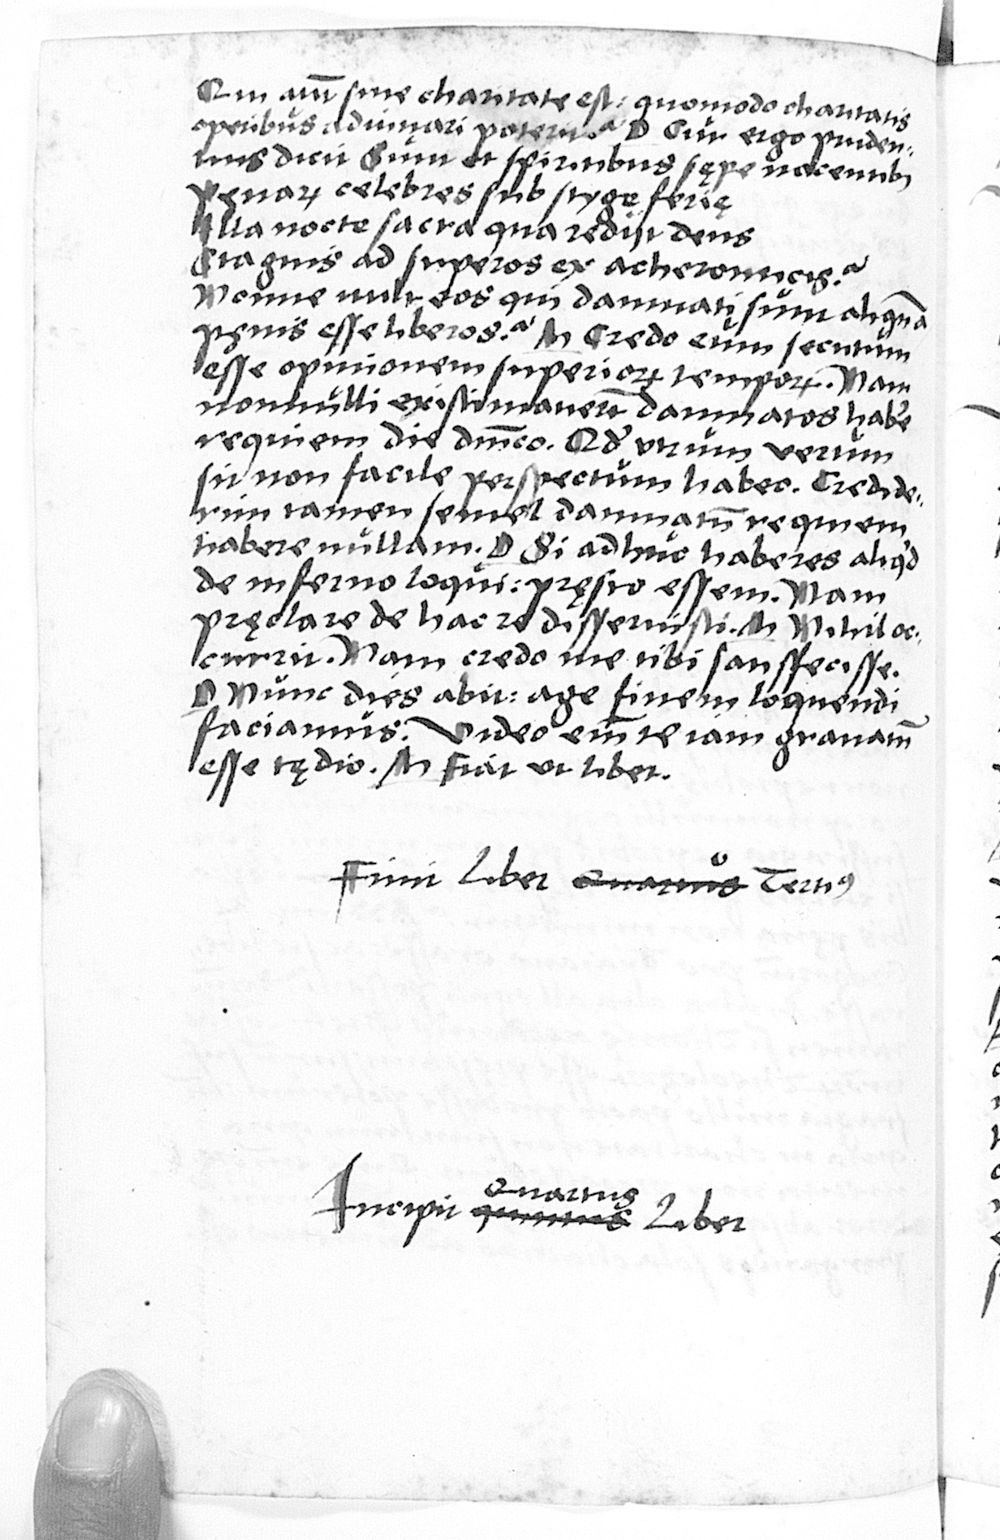 Qui aūt sine charitate est: quomodo charitatis
operibus adiuuari poterit? D Cur ergo pruden-
tius dicit Sunt et spiritibus sępe nocentibꝫ
Pęnaꝝ celebres sub styge ferię
Illa nocte sacra qua redijt deus
Stagnis ad superos ex acheronticis?
Nonne uult eos qui damnati sunt aliqn̄
pęnis esse liberos? M Credo eum secutum
esse opinionem superioꝝ tempoꝝ. Nam
nonnulli existimauerūt damnatos habe
requiem die dn̄ico. Qd' utrum verum
sit non facile perspectum habeo. Credide-
rim tamen semel damnatū requiem
habere nullam. D Si adhuc haberes aliqd
de inferno loqui: pręsto essem. Nam
pręclare de hac re disseruisti. M Nihil oc-
currit. Nam credo me tibi satisfecisse.
D Nunc dies abit: age finem loquendi
faciamus. Video em̄ te iam grauatū
esse tędio. M Fiat ut libet.
Finit Liber Quartus Tertiꝰ
Quartus
Incipit quintus Liber